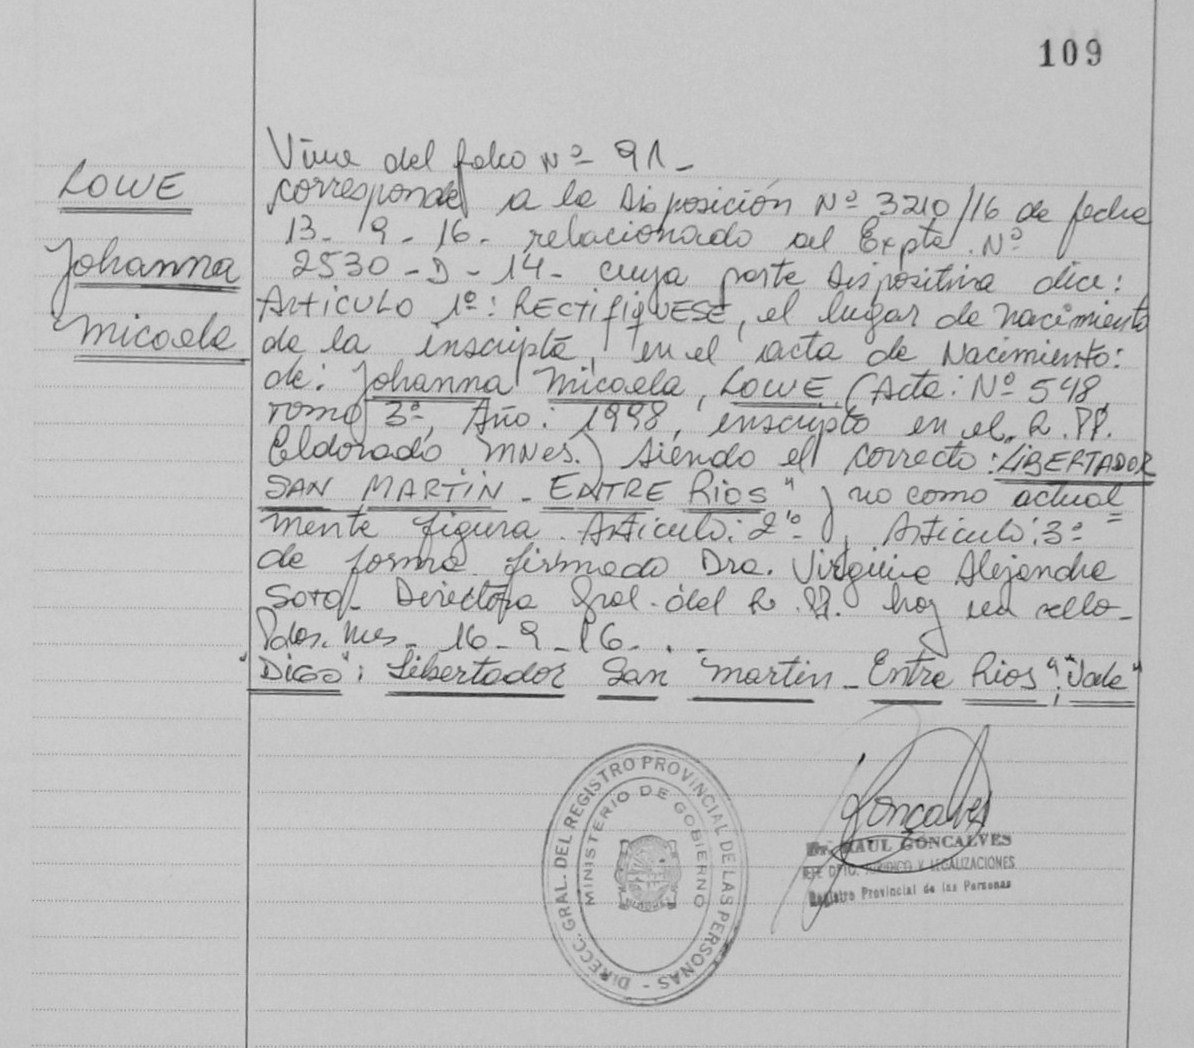 109
LOWE
Johanna
Micaela
Viene del folio Nº 91-
corresponde a la Disposición Nº 3210/16 de fecha
13-9-16- relacionado al Expte. Nº
2530-D-14- cuya parte Dispositiva dice:
ARTICULO 1º: RECTIFIQUESE, el lugar de nacimiento
de la inscripta, en el acta de Nacimiento:
de: Johanna Micaela, LOWE (Acta: Nº 548,
Tomo 3º, Año: 1998, inscripto en el R.PP.
Eldorado Mnes.) siendo el correcto: LIBERTADOR
SAN MARTIN - ENTRE Rios" y no como actual=
mente figura. Articulo: 2º, Articulo: 3º
de forma firmado Dra. Virginia Alejandra
Soto- Directora Gral. del R.PP. hoy un sello-
Pdas. Mes- 16-9-16- . -
"Digo": Libertador San Martin - Entre Rios"; "Vale"
DIRECC. GRAL. DEL REGISTRO PROVINCIAL DE LAS PERSONAS -
MINISTERIO DE GOBIERNO
Goncalves
Dr. RAUL GONCALVES
JEFE DPTO. JURIDICO Y LEGALIZACIONES
Registro Provincial de las Personas